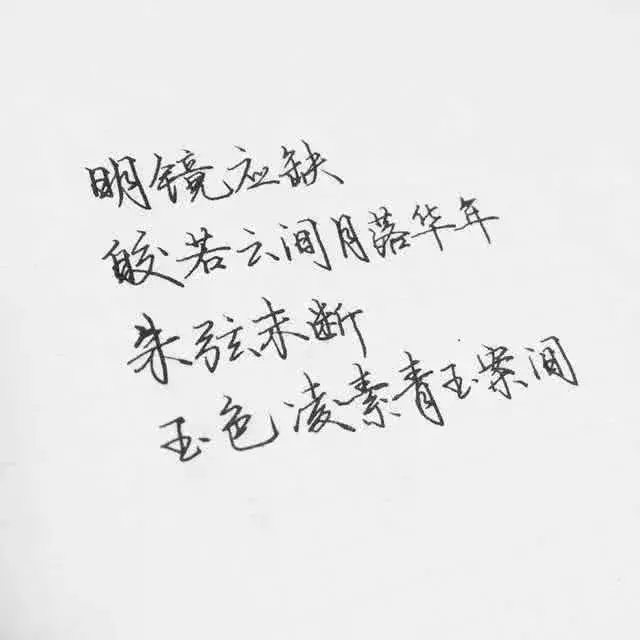 明镜应缺
皎若云间月落华年
朱弦未断
玉色凌素青玉案间